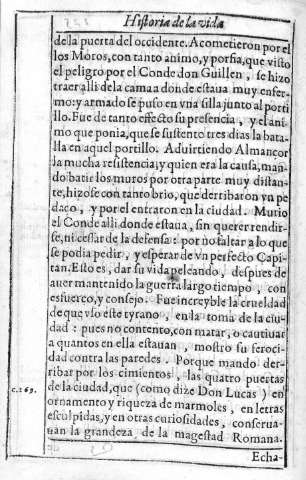 Historia de la vida
della puerta del occidente. Acometieron por el
los Moros, con tanto animo, y porfia, que visto
el peligro por el Conde don Guillen, se hizo
traer alli de la cama a donde estaua muy enfer-
mo: y armado se puso en vna silla junto al porti
llo. Fue de tanto effecto su presencia, y el ani
mo que ponia, que se sustento tres dias la bata-
lla en aquel portillo. Aduirtiendo Almançor
la mucha resistencia, y quien era la causa, man-
dò batir los muros por otra parte muy distan-
te, hizose con tanto brio, que derribaron vn pe
daço, y por el entraron en la ciudad. Murio
el Conde alli donde estaua, sin querer rendir-
se, ni cessar de la defensa: por no faltar a lo que
se podia pedir, y esperar de vn perfecto Capi-
tan. Esto es, dar su vida peleando, despues de
auer mantenido la guerra largo tiempo, con
esfuerço, y consejo. Fue increyble la crueldad
de que vso este tyrano, en la toma de la ciu-
dad: pues no contento, con matar, o cautiuar
a quantos en ella estauan, mostro su feroci-
dad contra las paredes. Porque mando der-
ribar por los cimientos, las quatro puertas
c. 169.
de la ciudad, que (como dize Don Lucas) en
ornamento y riqueza de marmoles, en letras
esculpidas, y en otras curiosidades, conserua-
uan la grandeza de la magestad Romana.
Echa-